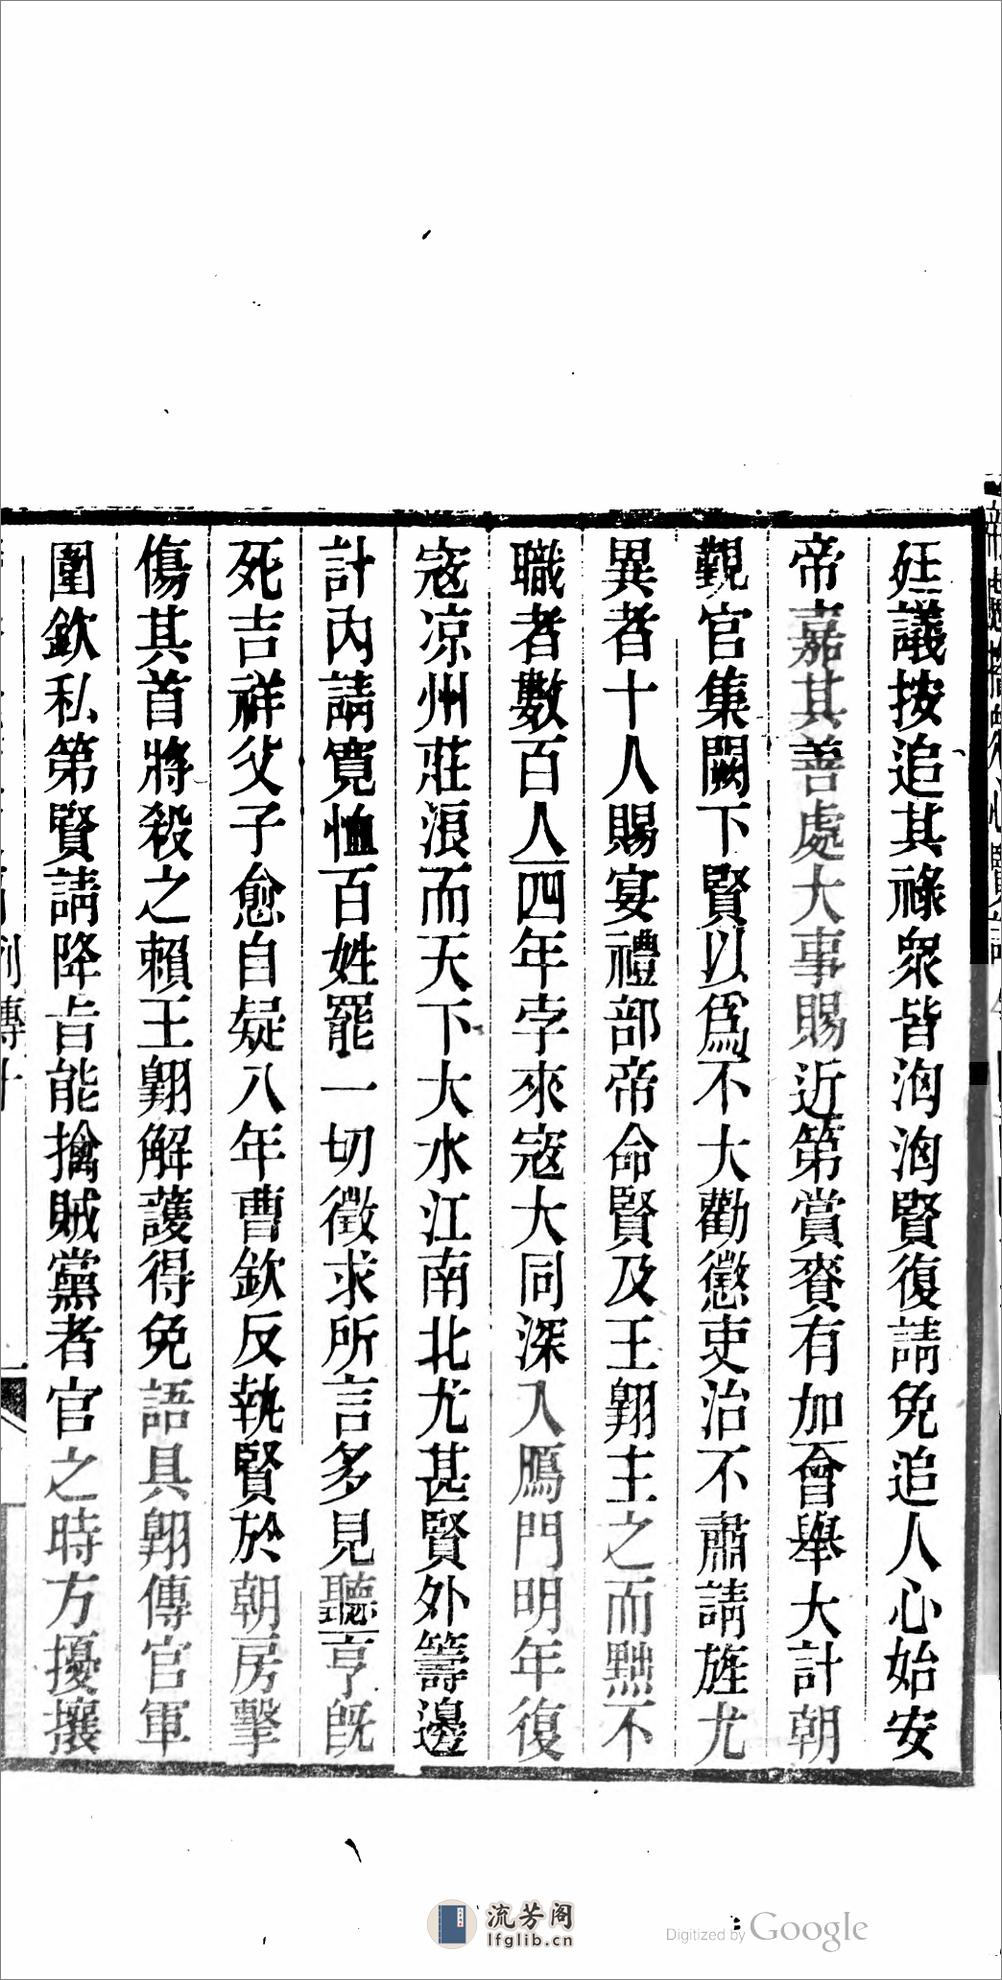 廷議按追其祿衆皆洶洶賢復請免追人心始安
帝嘉其善處大事賜近第賞賚有加會舉大計朝
覲官集闕下賢以爲不大勸懲吏治不肅請旌尤
異者十人賜宴禮部帝命賢及王翺主之而黜不
職者數百人四年孛來寇大同深入鴈門明年復
寇凉州莊浪而天下大水江南北尤甚賢外籌邊
計內請寬恤百姓罷一切徵求所言多見聽亨既
死吉祥父子愈自疑八年曹欽反執賢於朝房擊
傷其首將殺之賴王翺解護得免語具翺傳官軍
圍欽私第賢請降旨能擒賊黨者官之時方擾攘
列傳十
流芳阁
lfglib.cn
Digitized by Google